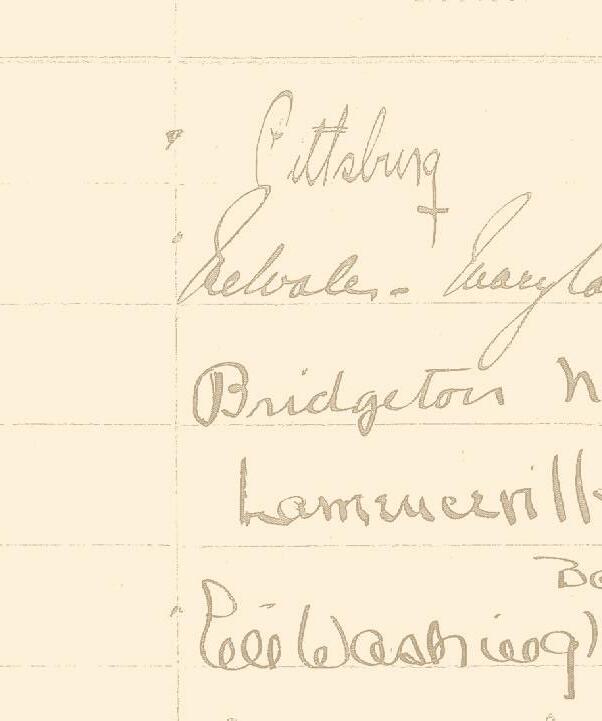 Pittsburg
Melvale - Maryla
Bridgeton N
Lawrenceville
Bo
Washing